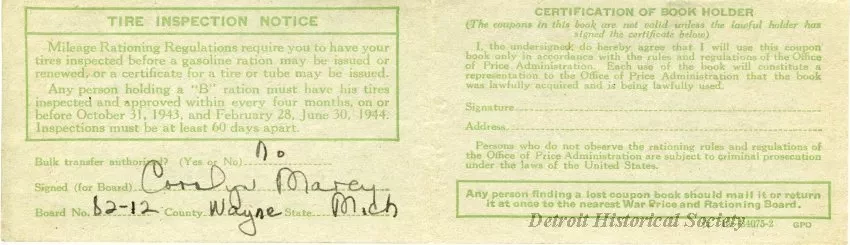 TIRE INSPECTION NOTICE
Mileage Rationing Regulations require you to have your
tires inspected before a gasoline ration may be issued or
renewed, or a certificate for a tire or tube may be issued.
Any person holding a "B" ration must have his tires
inspected and approved within every four months, on or
before October 31, 1943, and February 28, June 30, 1944.
Inspections must be at least 60 days apart.
Bulk transfer authorized? (Yes or No) No
Signed (for Board) Carolyn Marey
Board No. 82-12 County Wayne State Mich
CERTIFICATION OF BOOK HOLDER
(The coupons in this book are not valid unless the lawful holder has
signed the certificate below)
I, the undersigned, do hereby agree that I will use this coupon
book only in accordance with the rules and regulations of the Office
of Price Administration. Each use of the book will constitute a
representation to the Office of Price Administration that the book
was lawfully acquired and is being lawfully used.
Signature
Address
Persons who do not observe the rationing rules and regulations of
the Office of Price Administration are subject to criminal prosecution
under the laws of the United States.
Any person finding a lost coupon book should mail it or return
it at once to the nearest War Price and Rationing Board.
Detroit Historical Society
GPO